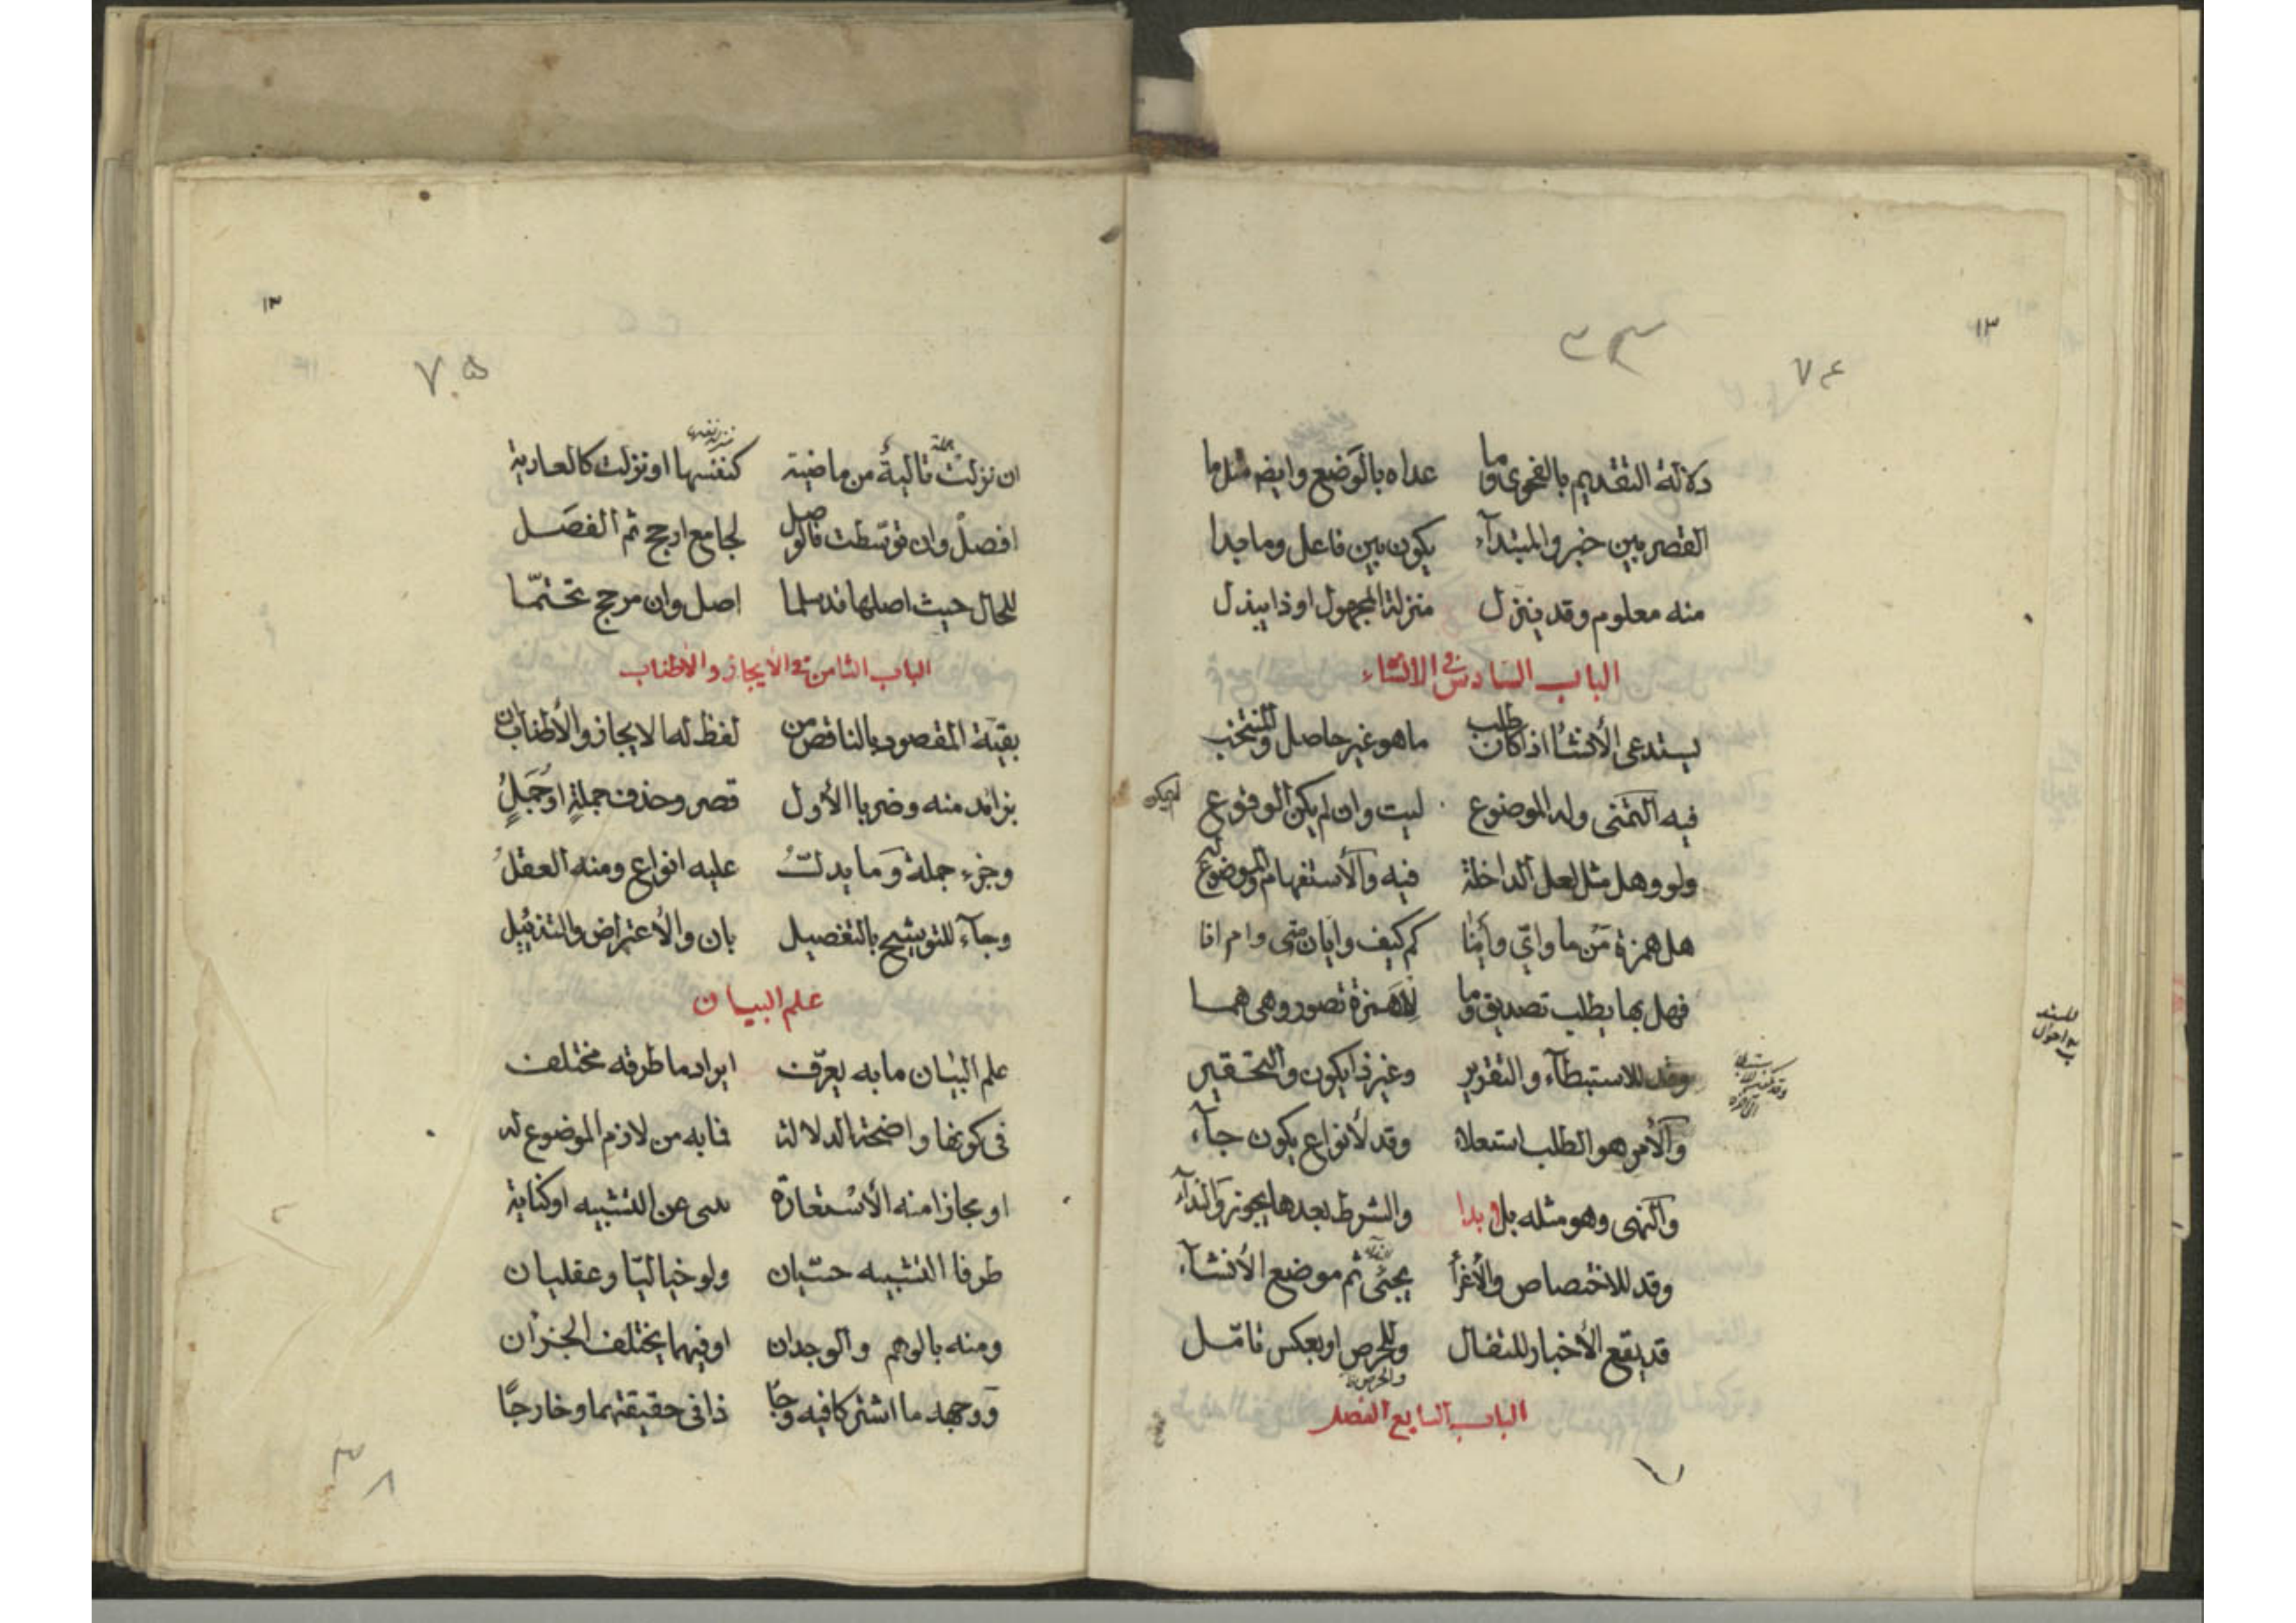 ١٣
٧٤
دلالة التقديم بالفحوى وما عداه بالوضع وايضا مثل ما
القصر بين خبر والمبتدآء يكون بين فاعل وما بدا
منه معلوم وقد ينزل منزلة المجهول او ذا يبذل
الباب السادس فى الانشاء
يستدعى الأنشا اذا كان طلب ما هو غير حاصل والمنتخب
فيه التمنى وله الموضوع ليت وان لم يكن الوقوع
ولو وهل مثل لعل الداخلة فيه والأستفهام والموضوع له
هل همزة من ما واىّ وأينا كم كيف وايان متى وام انا
فهل بها يطلب تصديق وما للاهمزة تصور وهى هما
وقد للاستبطآء والتقرير وغير ذا يكون والتحقير
والأمر هو الطلب استعلاء وقد لأنواع يكون جآء
والنهى وهو مثله بلا بدا والشرط بعدها يجوز والندآء
وقد للاختصاص والأغرأ يجئى ثم موضع الأنشآء
قد يقع الأخبار للتفال وللحرص او بعكس تامّل
والحرص
الباب السابع الفصل
١٣
٧٥
ان نزلت تالية من ماضية كنفسها او نزلت كالعارية
جملة
افصل وان توسّطت فالوصل لجامع ارجح ثم الفصل
للحال حيث اصلها قد سلما اصل وان مرجح تحتّما
الباب الثامن فى الأيجاز والأطناب
بقيّة المقصود بالناقص من لفظ له الايجاز والأطناب ان
بزائد منه وضربا الأول قصر وحذف جملةٍ او جملٍ
وجزء جملة وما يدلّ عليه انواع ومنه العقل
وجآء للتوشيح بالتفصيل بان والأعتراض والتذئيل
علم البيان
علم البيان ما به يعرّف ايراد ما طرقه مختلف
فى كونها واضحة الدلالة فما به من لازم الموضوع له
او مجازا منه الأستعارة تنبى عن التشبيه او كناية
طرفا التشبيه حسّيان ولو خياليّا وعقليان
ومنه بالوهم والوجدان او فيهما يختلف الجزان
ووجهه ما اشتركا فيه وجا ذا فى حقيقتهما وخارجًا